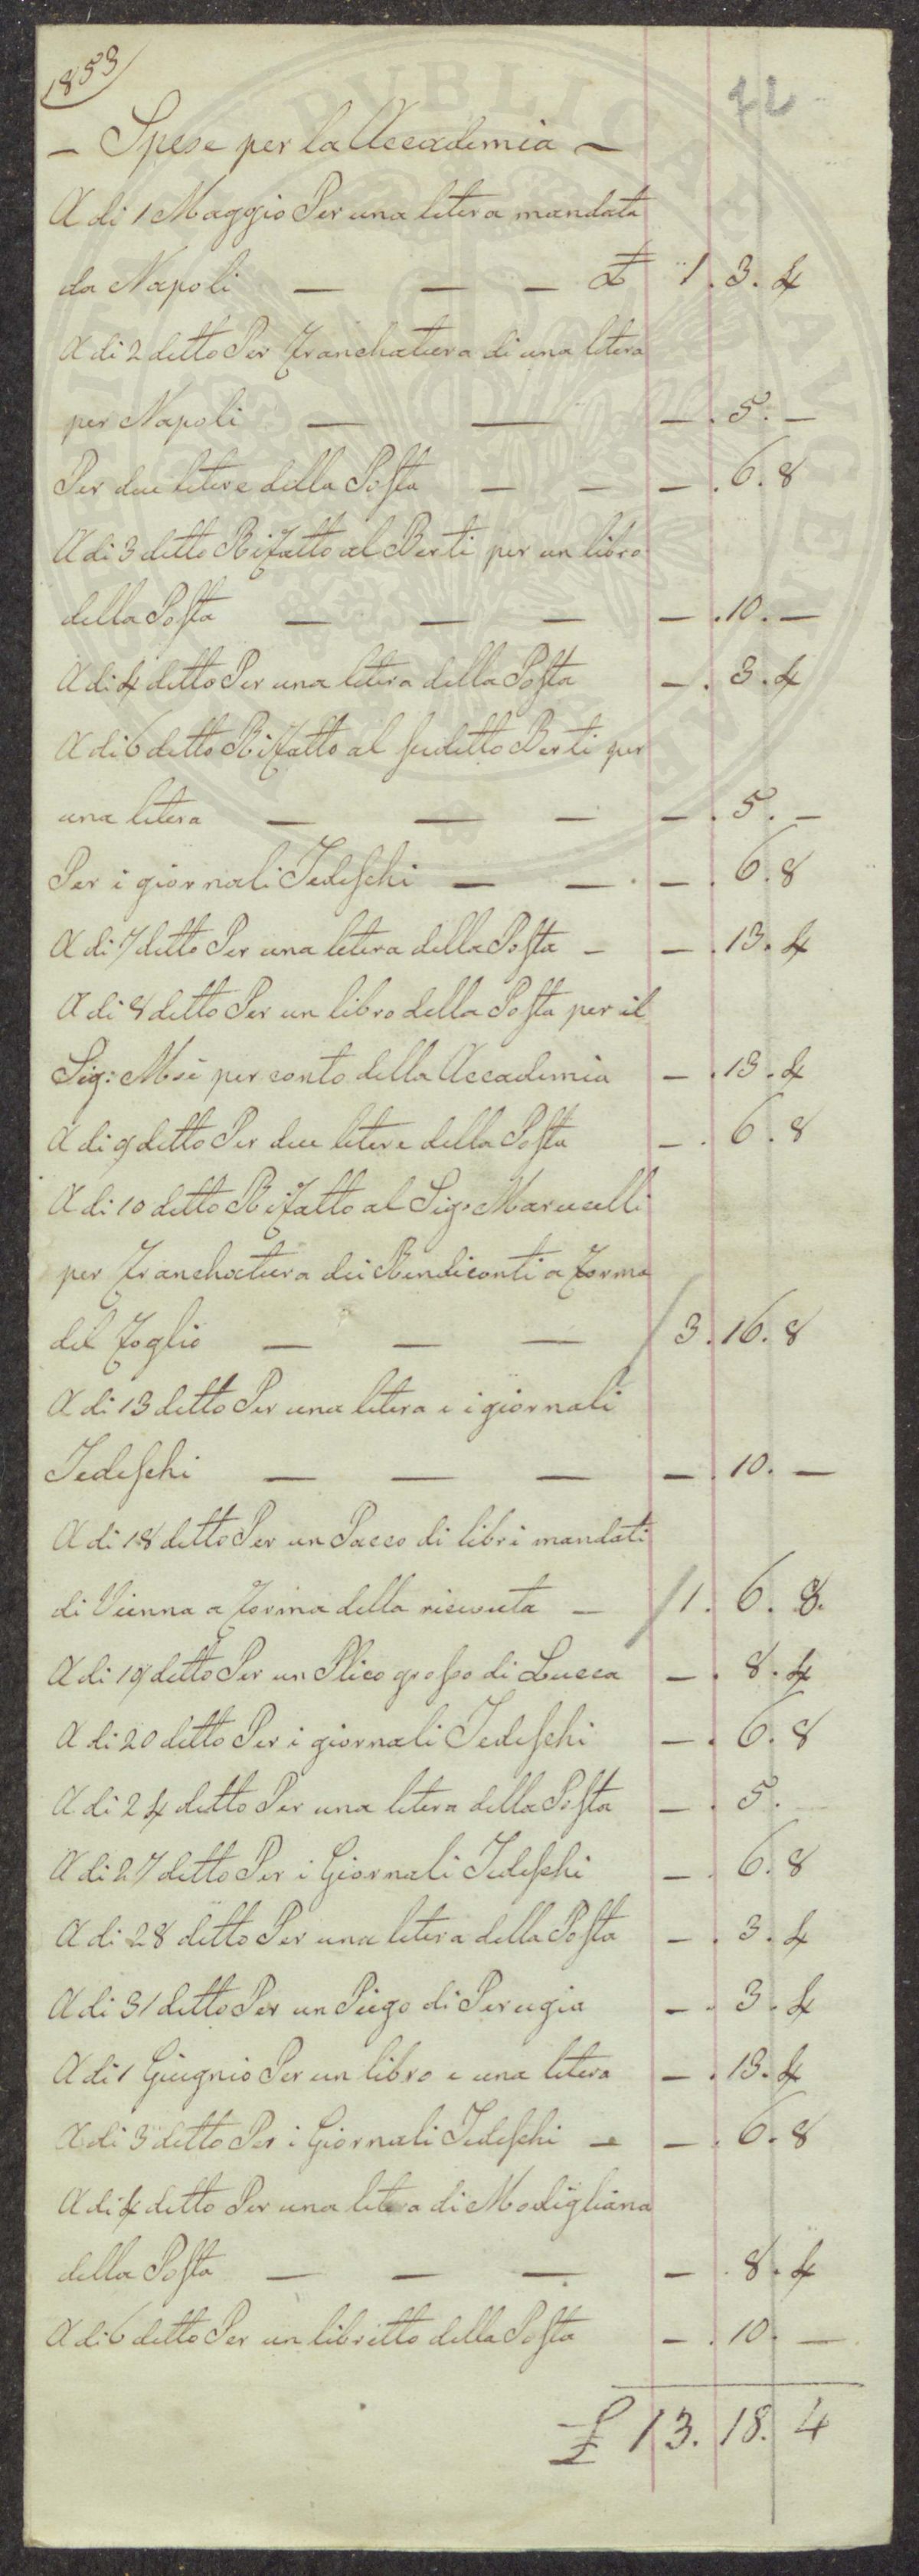 1853
72
– Spese per la Accademia –
A di 1 Maggio Per una litera mandata
da Napoli — — — £ 1. 3. 4
A di 2 ditto Per franchatura di una litera
per Napoli — — —. 5. —
Per due litere della Posta — — —. 6. 8
A di 3 ditto Rifatto al Berti per un libro
della Posta — — — —. 10. —
A di 4 ditto Per una litera della Posta —. 3. 4
A di 6 ditto Rifatto al sudetto Berti per
una litera — — — —. 5. —
Per i giornali Tedeschi — — —. 6. 8
A di 7 ditto Per una litera della Posta — —. 13. 4
A di 8 ditto Per un libro della Posta per il
Sig: per conto della Accademia —. 13. 4
A di 9 ditto Per due litere della Posta —. 6. 8
A di 10 ditto Rifatto al Sig: Marucelli
per franchatura dei Rendiconti a forma
del foglio — — — / 3. 16. 8
A di 13 ditto Per una litera e i giornali
Tedeschi — — — —. 10. —
A di 18 ditto Per un Pacco di libri mandati
di Vienna a forma della riceuta — / 1. 6. 8.
A di 19 ditto Per un Plico grosso di Lucca —. 8. 4
A di 20 ditto Per i giornali Tedeschi —. 6. 8
A di 24 ditto Per una litera della Posta —. 5. —
A di 27 ditto Per i Giornali Tedeschi —. 6. 8
A di 28 ditto Per una litera della Posta —. 3. 4
A di 31 ditto Per un Piego di Perugia —. 3. 4
A di 1 Giugnio Per un libro e una litera —. 13. 4
A di 3 ditto Per i Giornali Tedeschi — —. 6. 8
A di 4 ditto Per una litera di Modigliana
della Posta — — — —. 8. 4
A di 6 ditto Per un libritto della Posta —. 10. —
£ 13. 18. 4